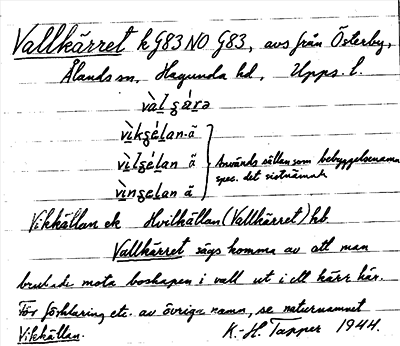 Vallkärret k G83 NO G83, avs från Österby,
Ålands sn, Hagunda hd, Upps. l.
vàlʂárə
vìkʂélan ä
vìlʂélan ä
vìnʂelan ä
Används sällan som bebyggelsenamn
spec. det sistnämnda
Vikkällan ek Hvilkällan (Vallkärret) hb
Vallkärret sägs komma av att man
brukade mota boskapen i vall ut i ett kärr här.
För förklaring etc. av övriga namn, se naturnamnet
Vikkällan. K.-H. Tapper 1944.